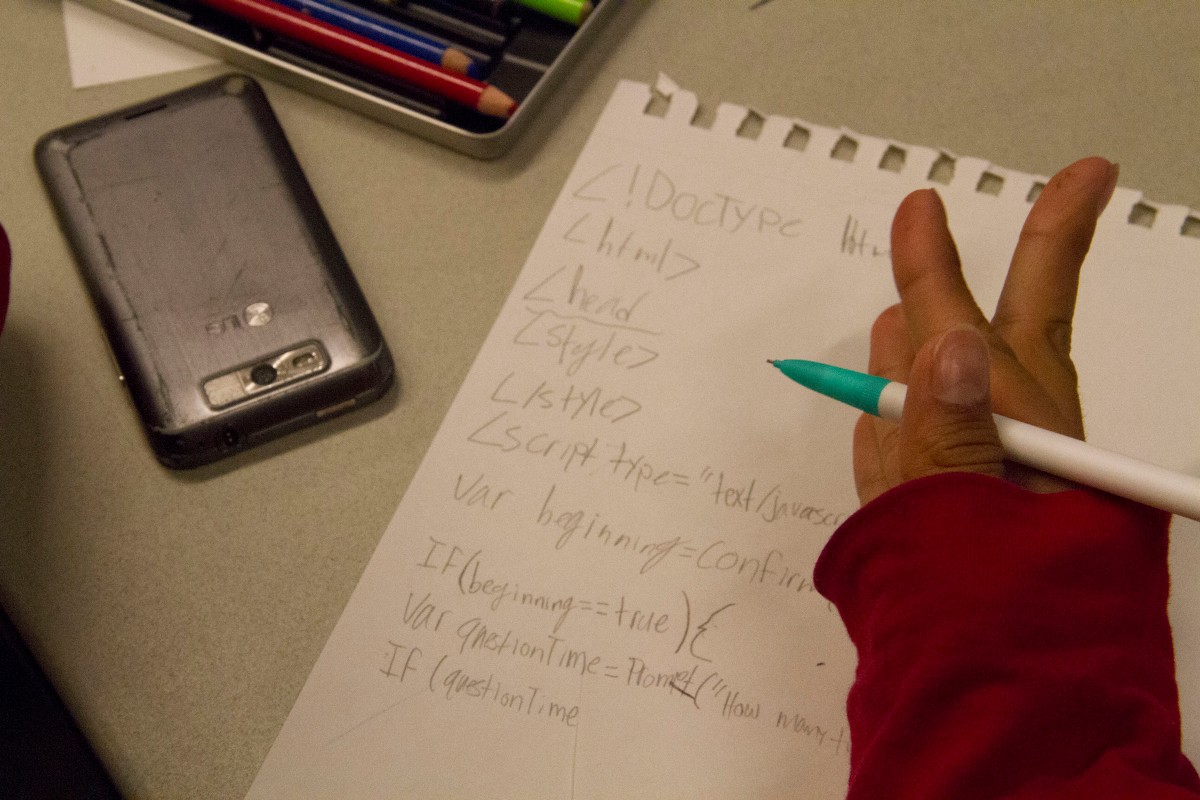 <!DocType
<html>
<head
<style>
</style>
<script type="text/javascr
var beginning=Confirm
If(beginning==true){
Var questionTime=Prompt("How many
If (questionTime
LG